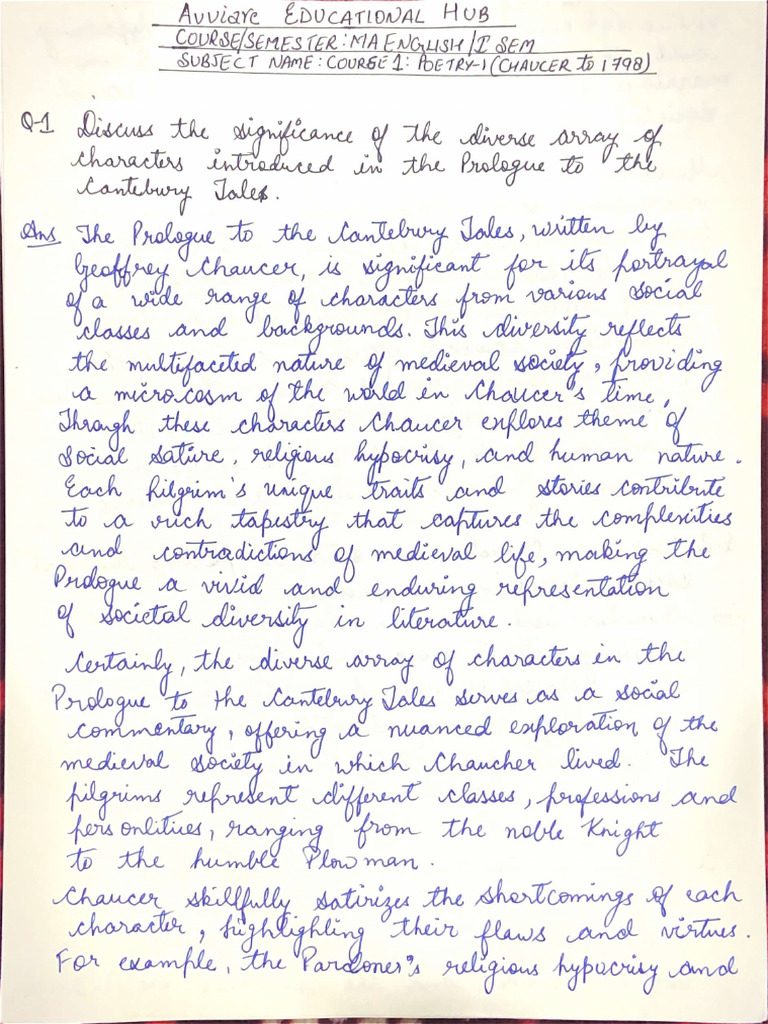 Avviare EDUCATIONAL HUB
COURSE/SEMESTER: MA ENGLISH/I SEM
SUBJECT NAME: COURSE 1: POETRY-1 (CHAUCER to 1798)
Q-1 Discuss the significance of the diverse array of
characters introduced in the Prologue to the
Cantebury Tales.
Ans The Prologue to the Cantebury Tales, written by
Geoffrey Chaucer, is significant for its portrayal
of a wide range of characters from various social
classes and backgrounds. This diversity reflects
the multifaceted nature of medieval society, providing
a microcosm of the world in Chaucer's time.
Through these characters Chaucer explores theme of
social sature, religious hypocrisy, and human nature.
Each pilgrim's unique traits and stories contribute
to a rich tapestry that captures the complexities
and contradictions of medieval life, making the
Prologue a vivid and enduring representation
of societal diversity in literature.
Certainly, the diverse array of characters in the
Prologue to the Cantebury Tales serves as a social
commentary, offering a nuanced exploration of the
medieval society in which Chaucher lived. The
pilgrims represent different classes, professions and
personlities, ranging from the noble Knight
to the humble Plowman.
Chaucer skillfully satirizes the shortcomings of each
character, highlighting their flaws and virtues.
For example, the Pardoner's religious hypocrisy and